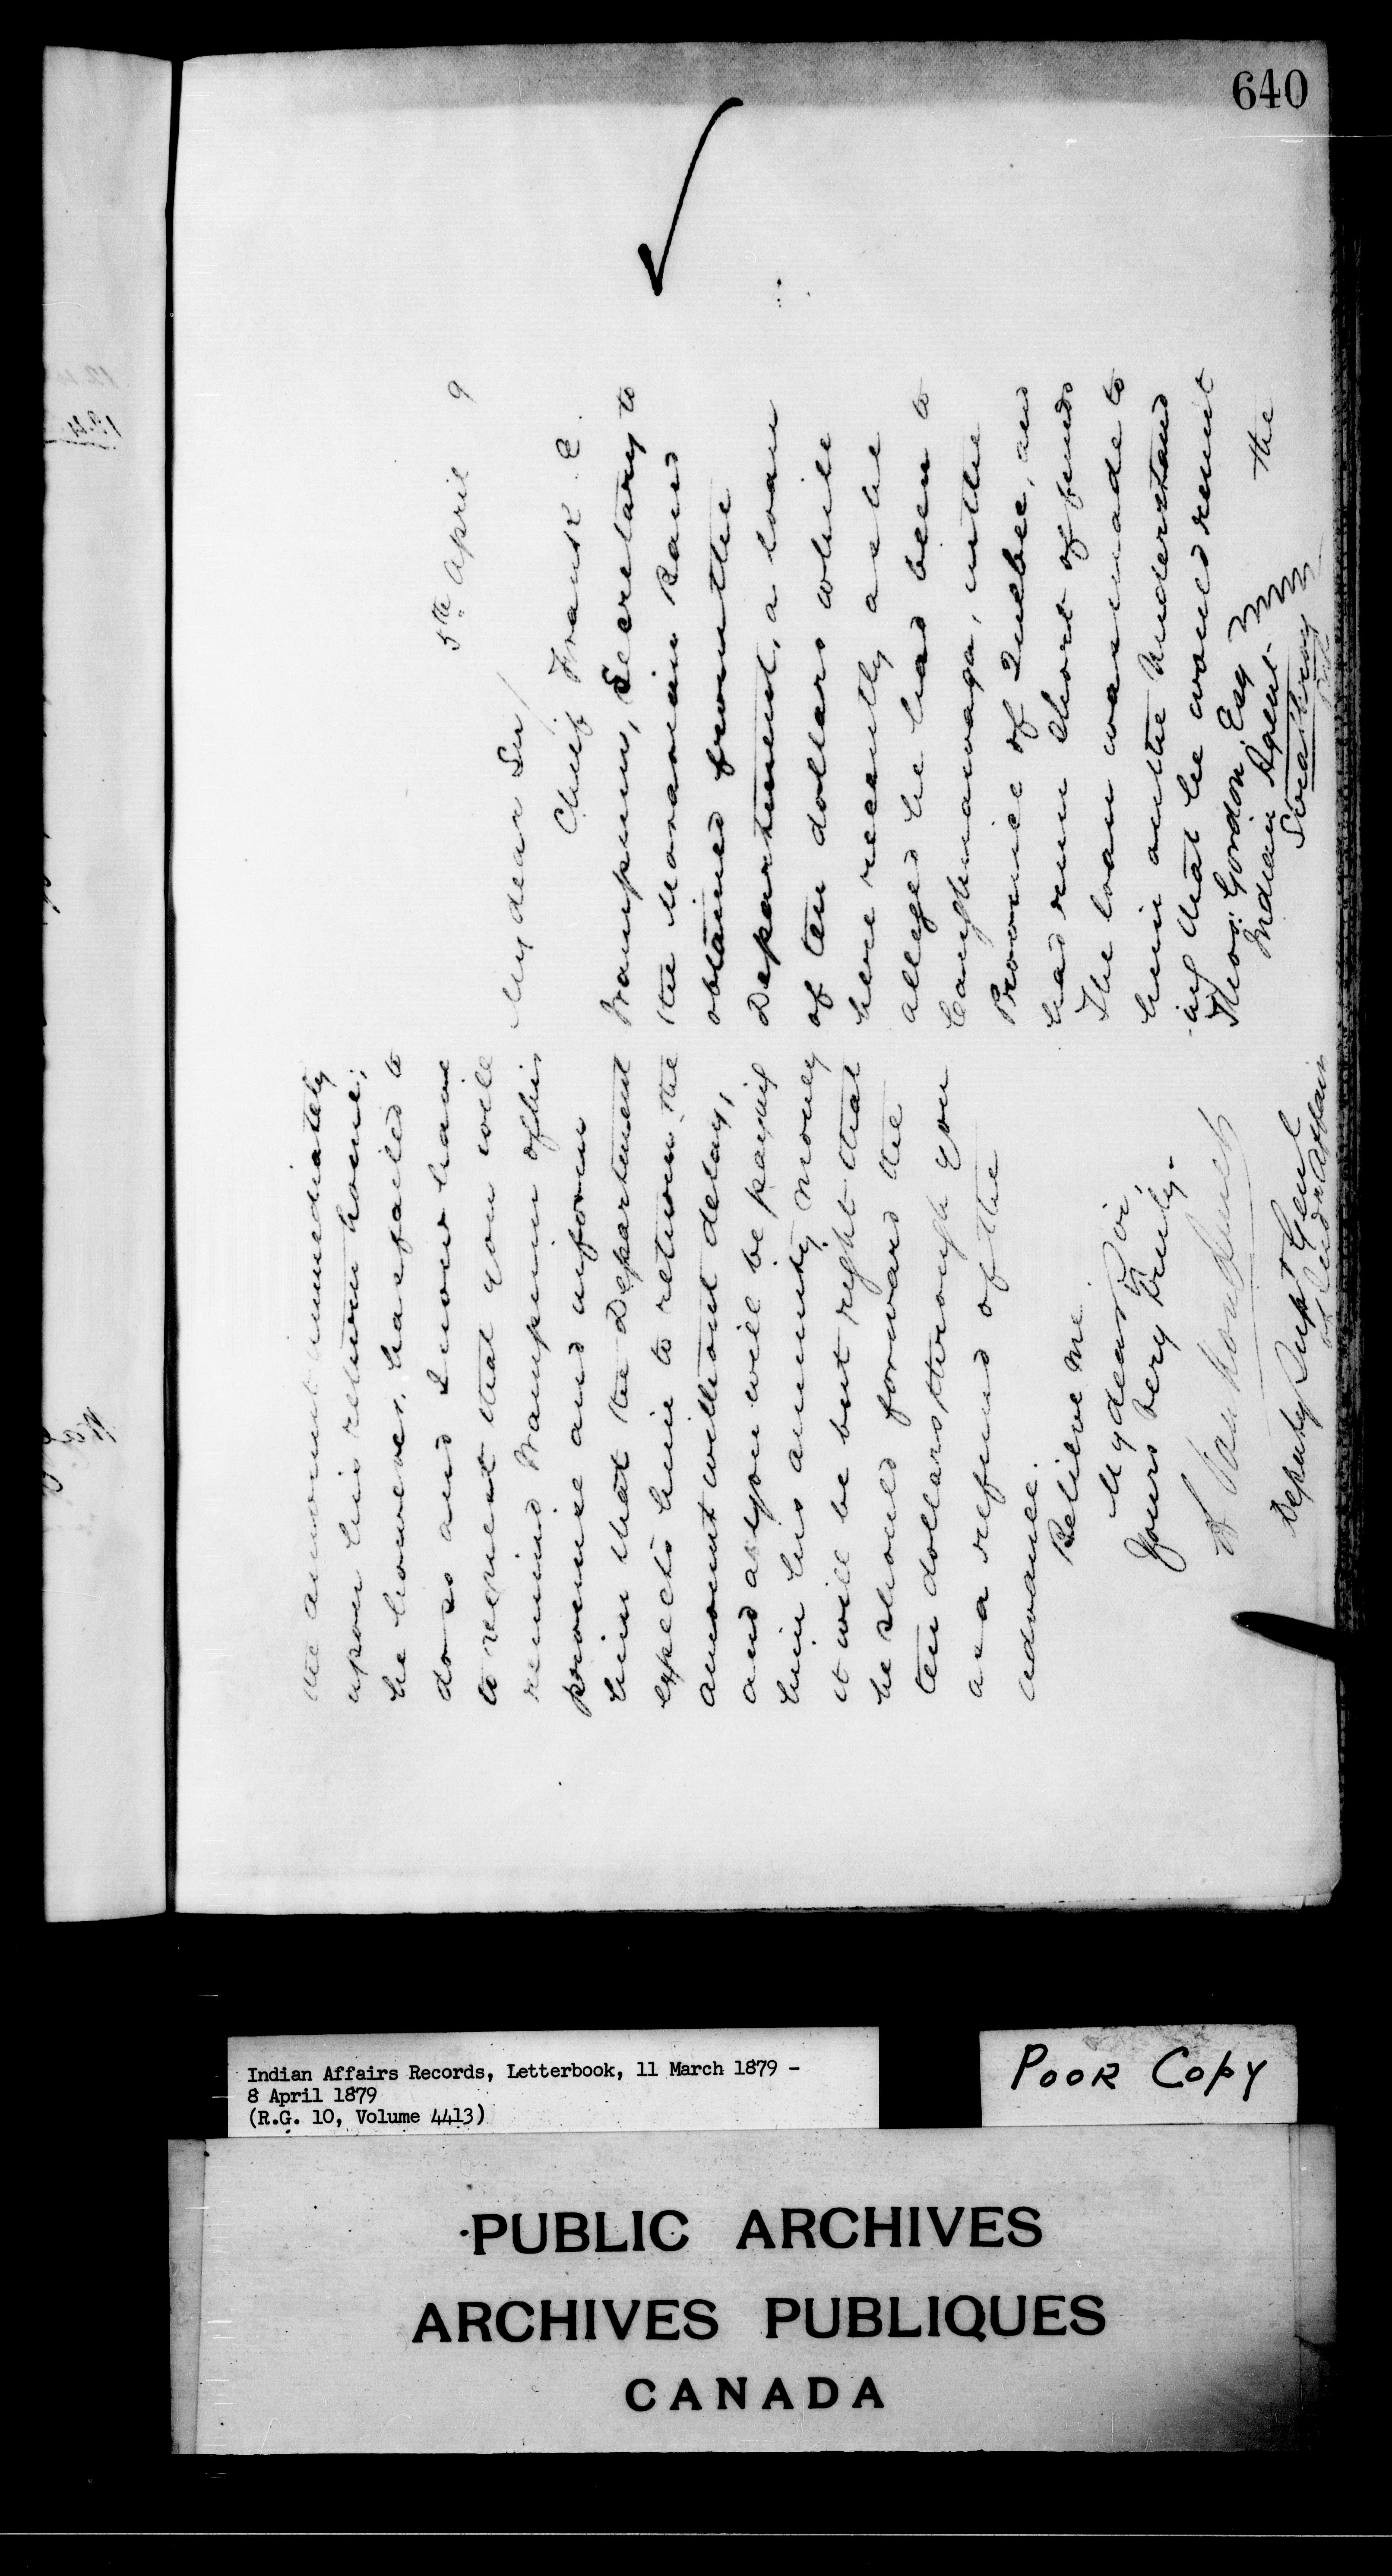 640
5th April 9
My dear Sir/
Chief Frank E.
Wampum, Secretary to
the Moravian Band
obtained from the
Department, a loan
of ten dollars while
here recently as he
alleged he had been to
Caughnawaga, in the
Province of Quebec, and
had run short of funds
The loan was made to
him on the understand
-ing that he would remit
the
Thos: Gordon, Esq
Indian Agent
Strathroy
the amount immediately
upon his return home;
he however, has failed to
do so and I now have
to request that you will
remind Wampum of his
promise and inform
him that the Department
expects him to return the
amount without delay,
and as you will be paying
him his annuity money
it will be but right that
he should forward the
ten dollars through you
as a refund of the
advance.
Believe me
My dear Sir,
Yours very truly.
L Vankoughnet
Deputy Supt Genl
of Indn Affairs
Indian Affairs Records, Letterbook, 11 March 1879 -
8 April 1879
(R.G. 10, Volume 4413)
POOR COPY
PUBLIC ARCHIVES
ARCHIVES PUBLIQUES
CANADA